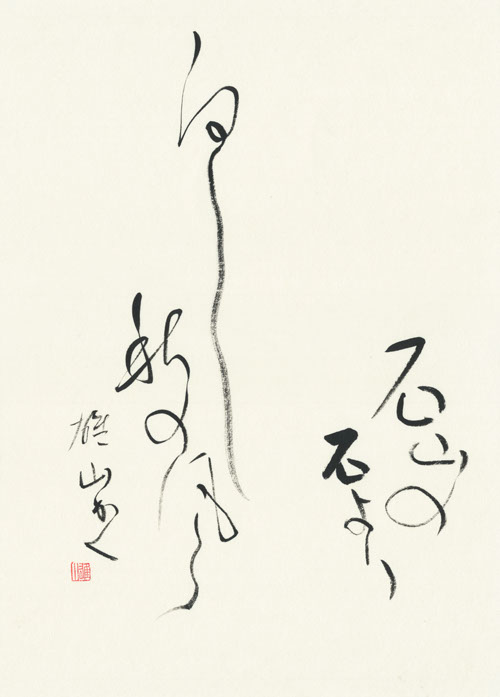 石山の
石より
白し
秋の
風
雄山かく